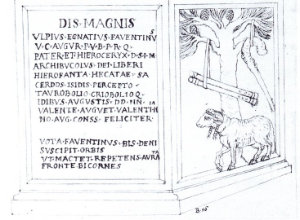 DIS·MAGNIS
VLPIVS·EGNATIVS·FAVENTINVS
V·C·AVGVR·P·V·B·P·R·Q·
PATER·ET·HIEROCERYX·D·S·I·M·
ARCHIBVCOLVS·DEI·LIBERI
HIEROFANTA·HECATAE·SA
CERDOS·ISIDIS·PERCEPTO·
TAVROBOLIO·CRIOBOLIOQ·
IDIBVS·AVGVSTIS·DD·NN·
VALENTE·AVG·V·ET·VALENTINI
NO·AVG·CONSS·FELICITER·
VOTA·FAVENTINVS·BIS·DENI
SVSCIPIT·ORBIS
VT·MACTET·REPETENS·AVRATA
FRONTE·BICORNES